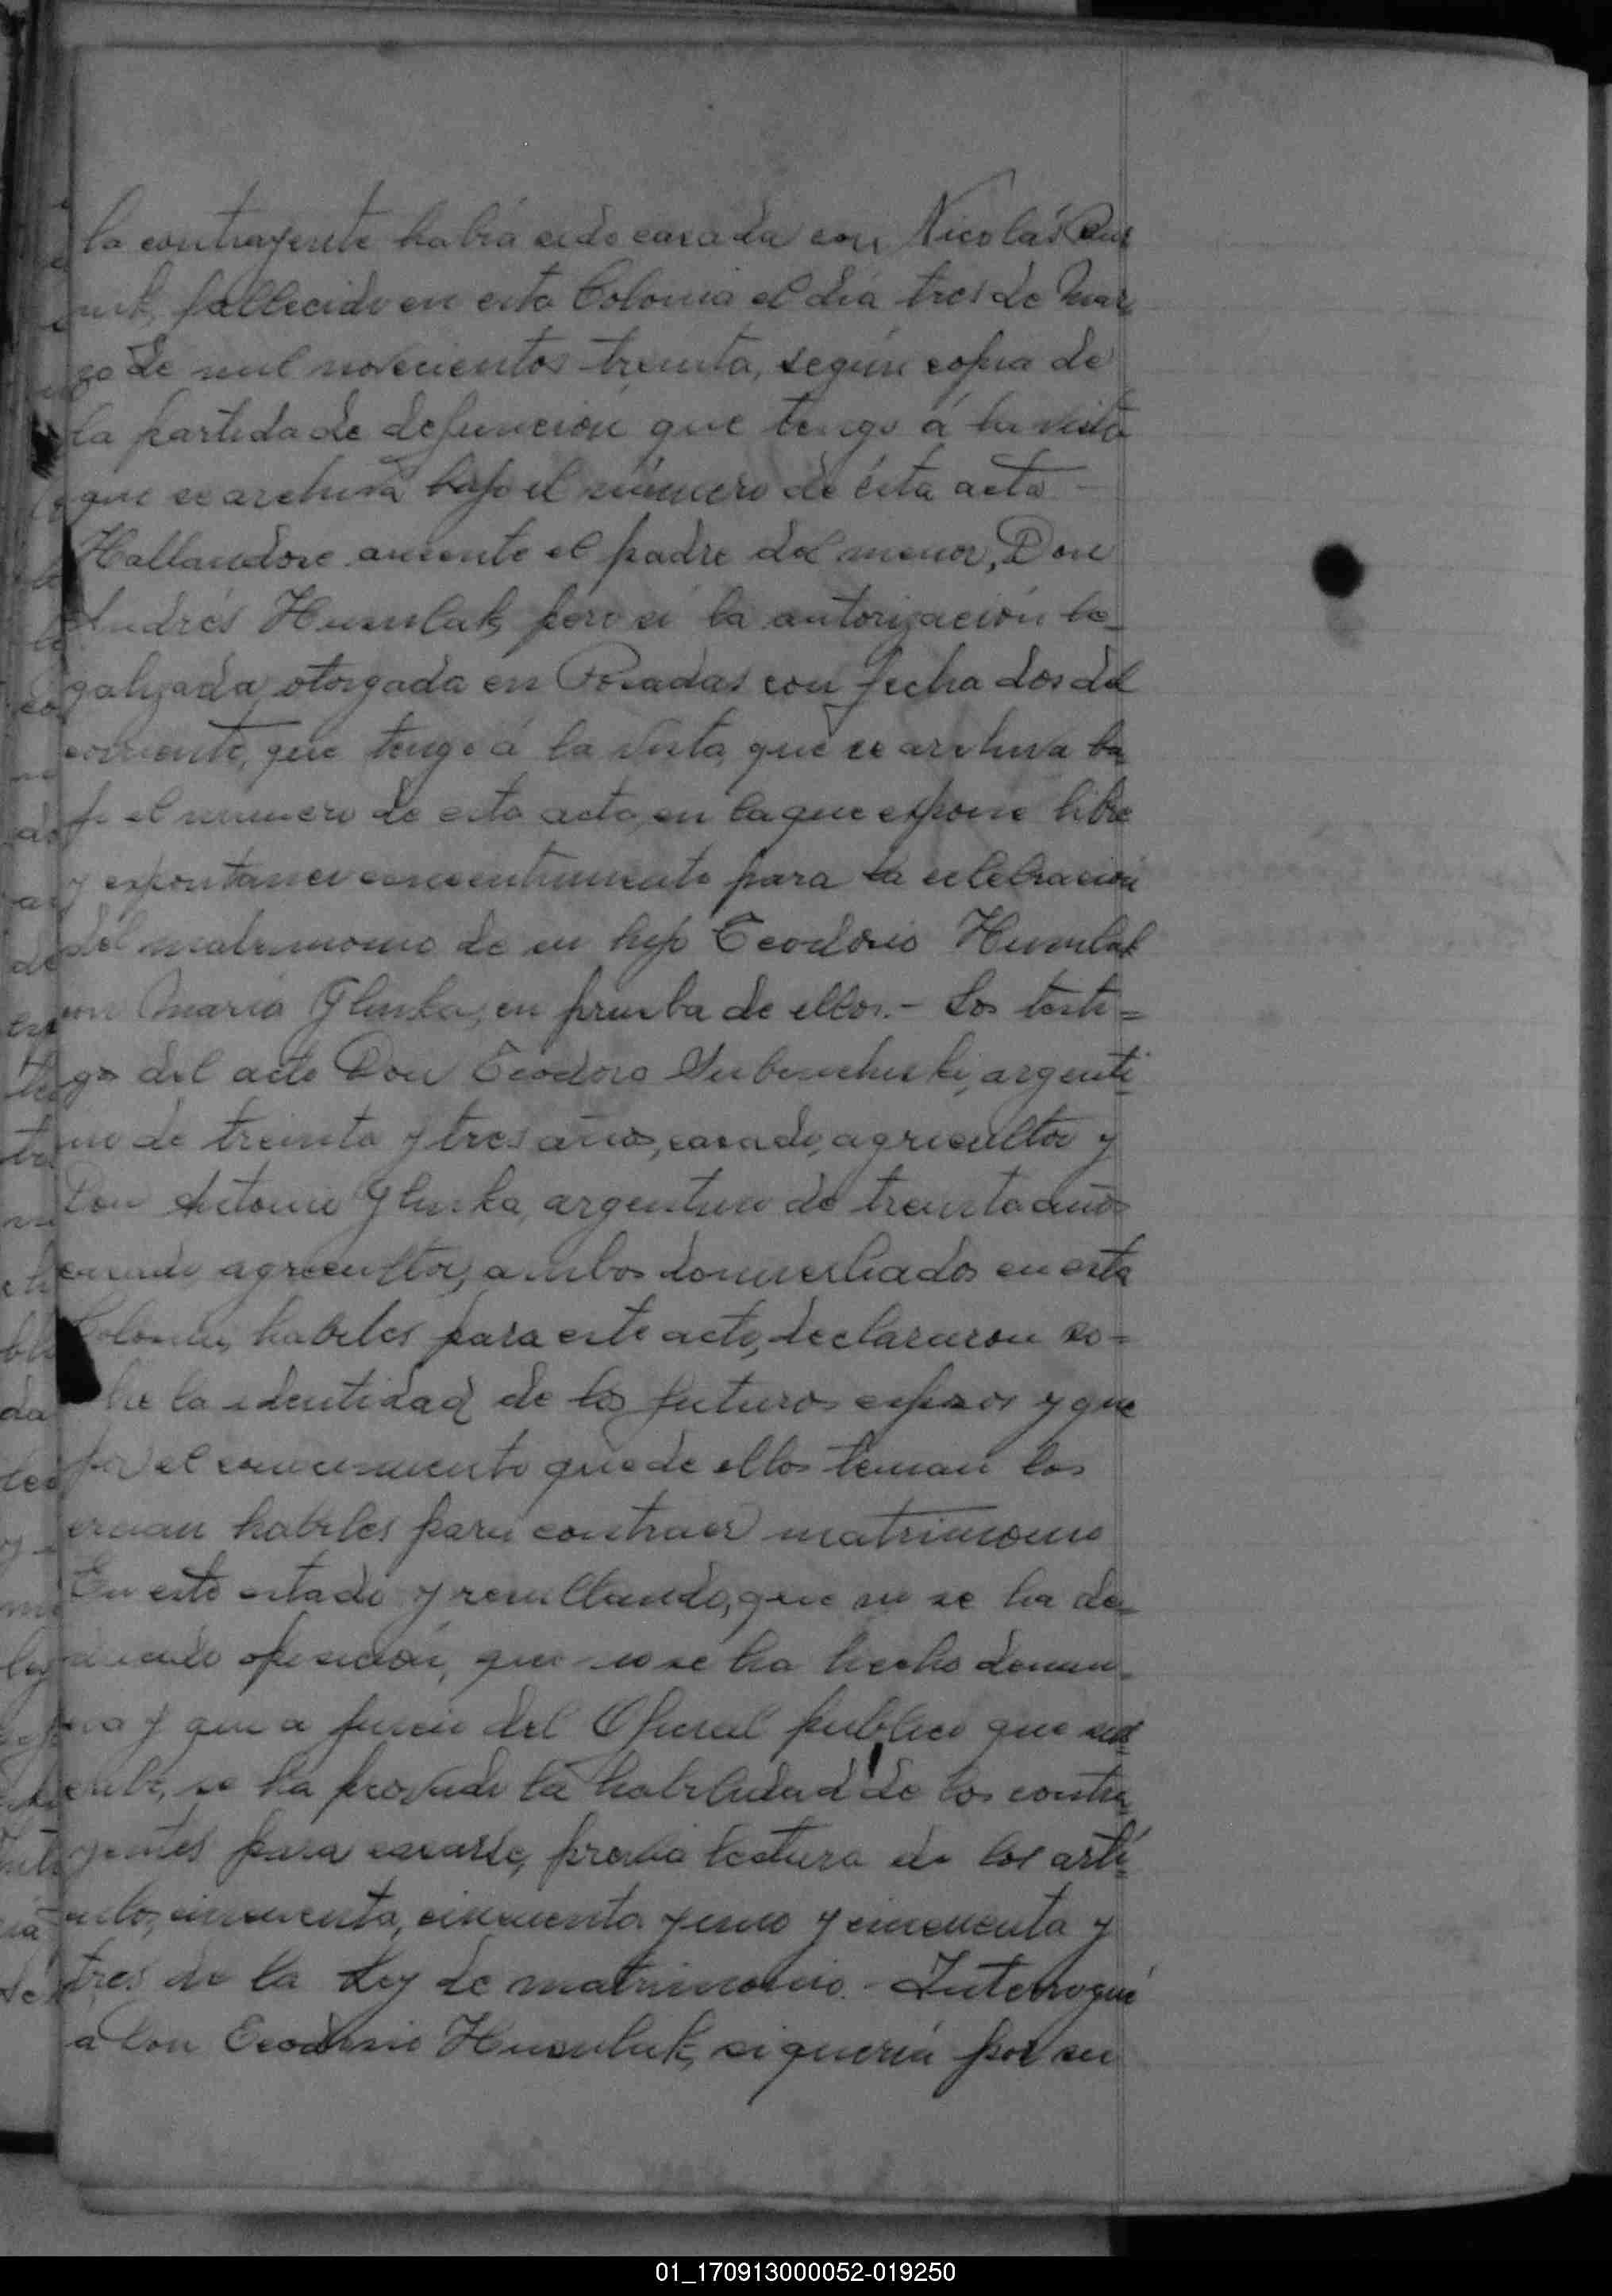 la contrayente había sido casada con Nicolás
fallecido en esta Colonia el día tres de Mar
zo de mil novecientos treinta, según copia de
la partida de defunción que tengo á la vista
que se archiva bajo el número de ésta acta -
Hallandose ausente el padre del menor, Don
Andrés Humlak, pero si la autorización le-
galizada, otorgada en Posadas con fecha dos del
corriente, que tengo á la vista, que se archiva ba
jo el numero de esta acta, en la que expone libre
y espontaneo consentimiento para la celebración
del matrimonio de su hijo Teodosio
con María Glinka, en prueba de ellos.- Los testi=
gos del acto Don Teodoro argenti
no de treinta y tres años, casado, agricultor y
Don Antonio Glinka, argentino de treinta años
casado, agricultor, ambos domiciliados en esta
Colonia, habiles para este acto, declararon so=
bre la identidad de los futuros esposos y que
por el conocimiento que de ellos tenian los
creian habiles para contraer matrimonio
En este estado y resultando, que no se ha de-
ducido oposición, que no se ha hecho denun-
cia y que a juicio del Oficial publico que sus
cribe, se ha probado la habilidad de los contra
yentes para casarse, previa lectura de los arti
culos, cincuenta, cincuenta y uno y cincuenta y
tres de la Ley de matrimonio.- Interrogué
a Don Teodosio si quería por su
01_170913000052-019250